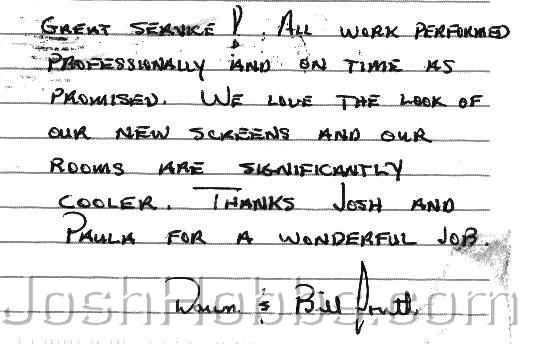 GREAT SERVICE! ALL WORK PERFORMED
PROFESSIONALLY AND ON TIME AS
PROMISED. WE LOVE THE LOOK OF
OUR NEW SCREENS AND OUR
ROOMS ARE SIGNIFICANTLY
COOLER. THANKS JOSH AND
PAULA FOR A WONDERFUL JOB.
& Bill
JoshHobbs.com